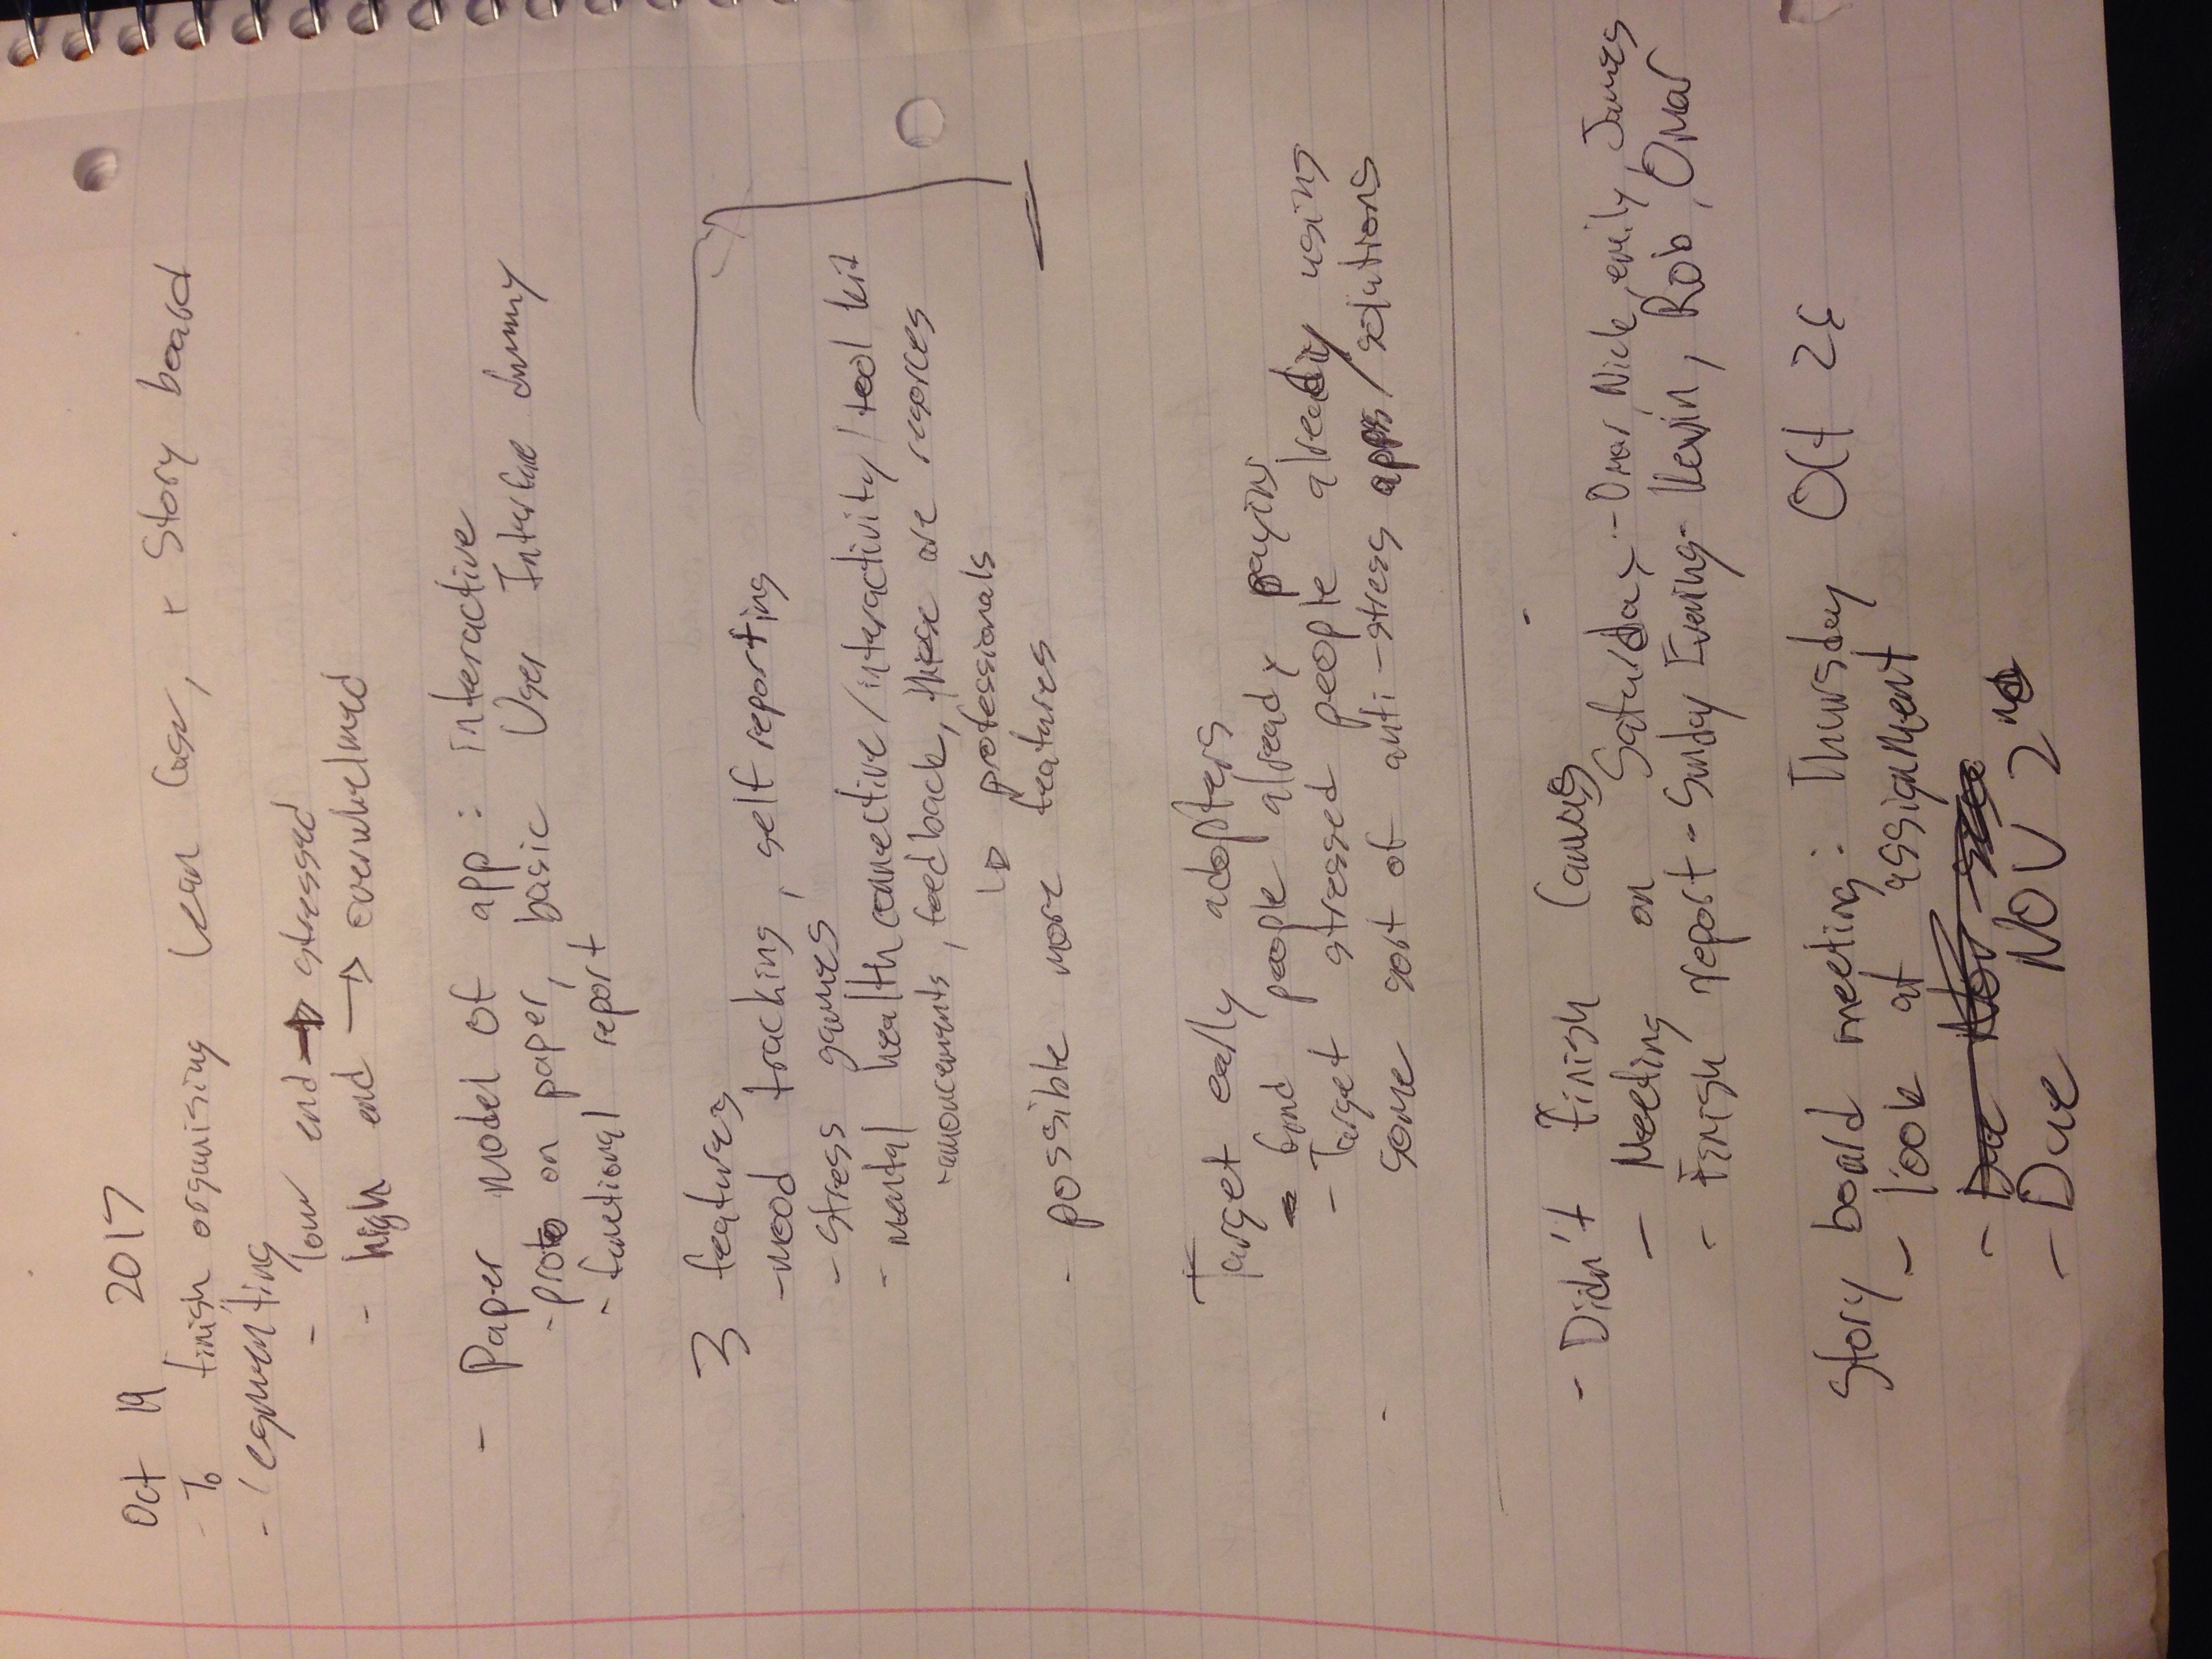 Oct 19, 2017
- To finish organising Lean Case, + Story board
- Segmenting
- low end → stressed
- high end → overwhelmed
- Paper model of app : interactive
- proto on paper, basic User Interface dummy
- functional report
3 features
- mood tracking, self reporting
- stress games
- mental health connective/interactivity/tool kit
- announcements, feedback, these are resorces
↳ professionals
- possible more features
Target early adopters
- find people already paying
- Target stressed people already using
some sort of anti-stress apps/solutions
- Didn't finish Canvas
- Meeting on Saturday - Omar, Nick, emily, James
- Finish report - Sunday Evening - Kevin, Rob, Omar
Story board meeting: Thursday Oct 26
- look at assignment
- Due Nov
- Due NOV 2nd